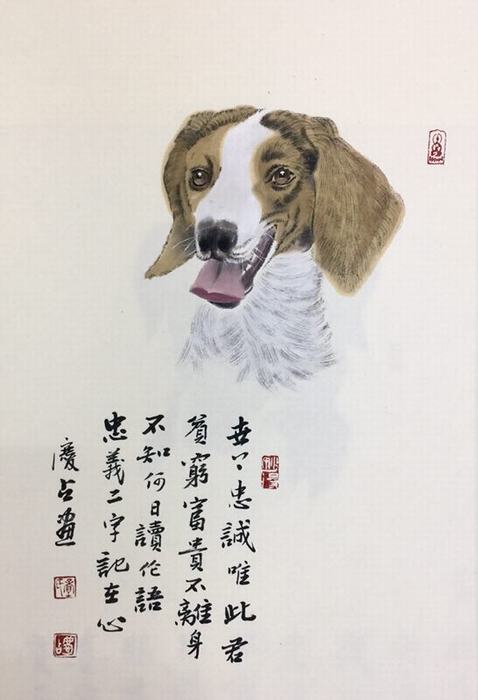 世上忠誠唯此君
貧窮富貴不離身
不知何日讀论語
忠義二字記在心
慶占畫